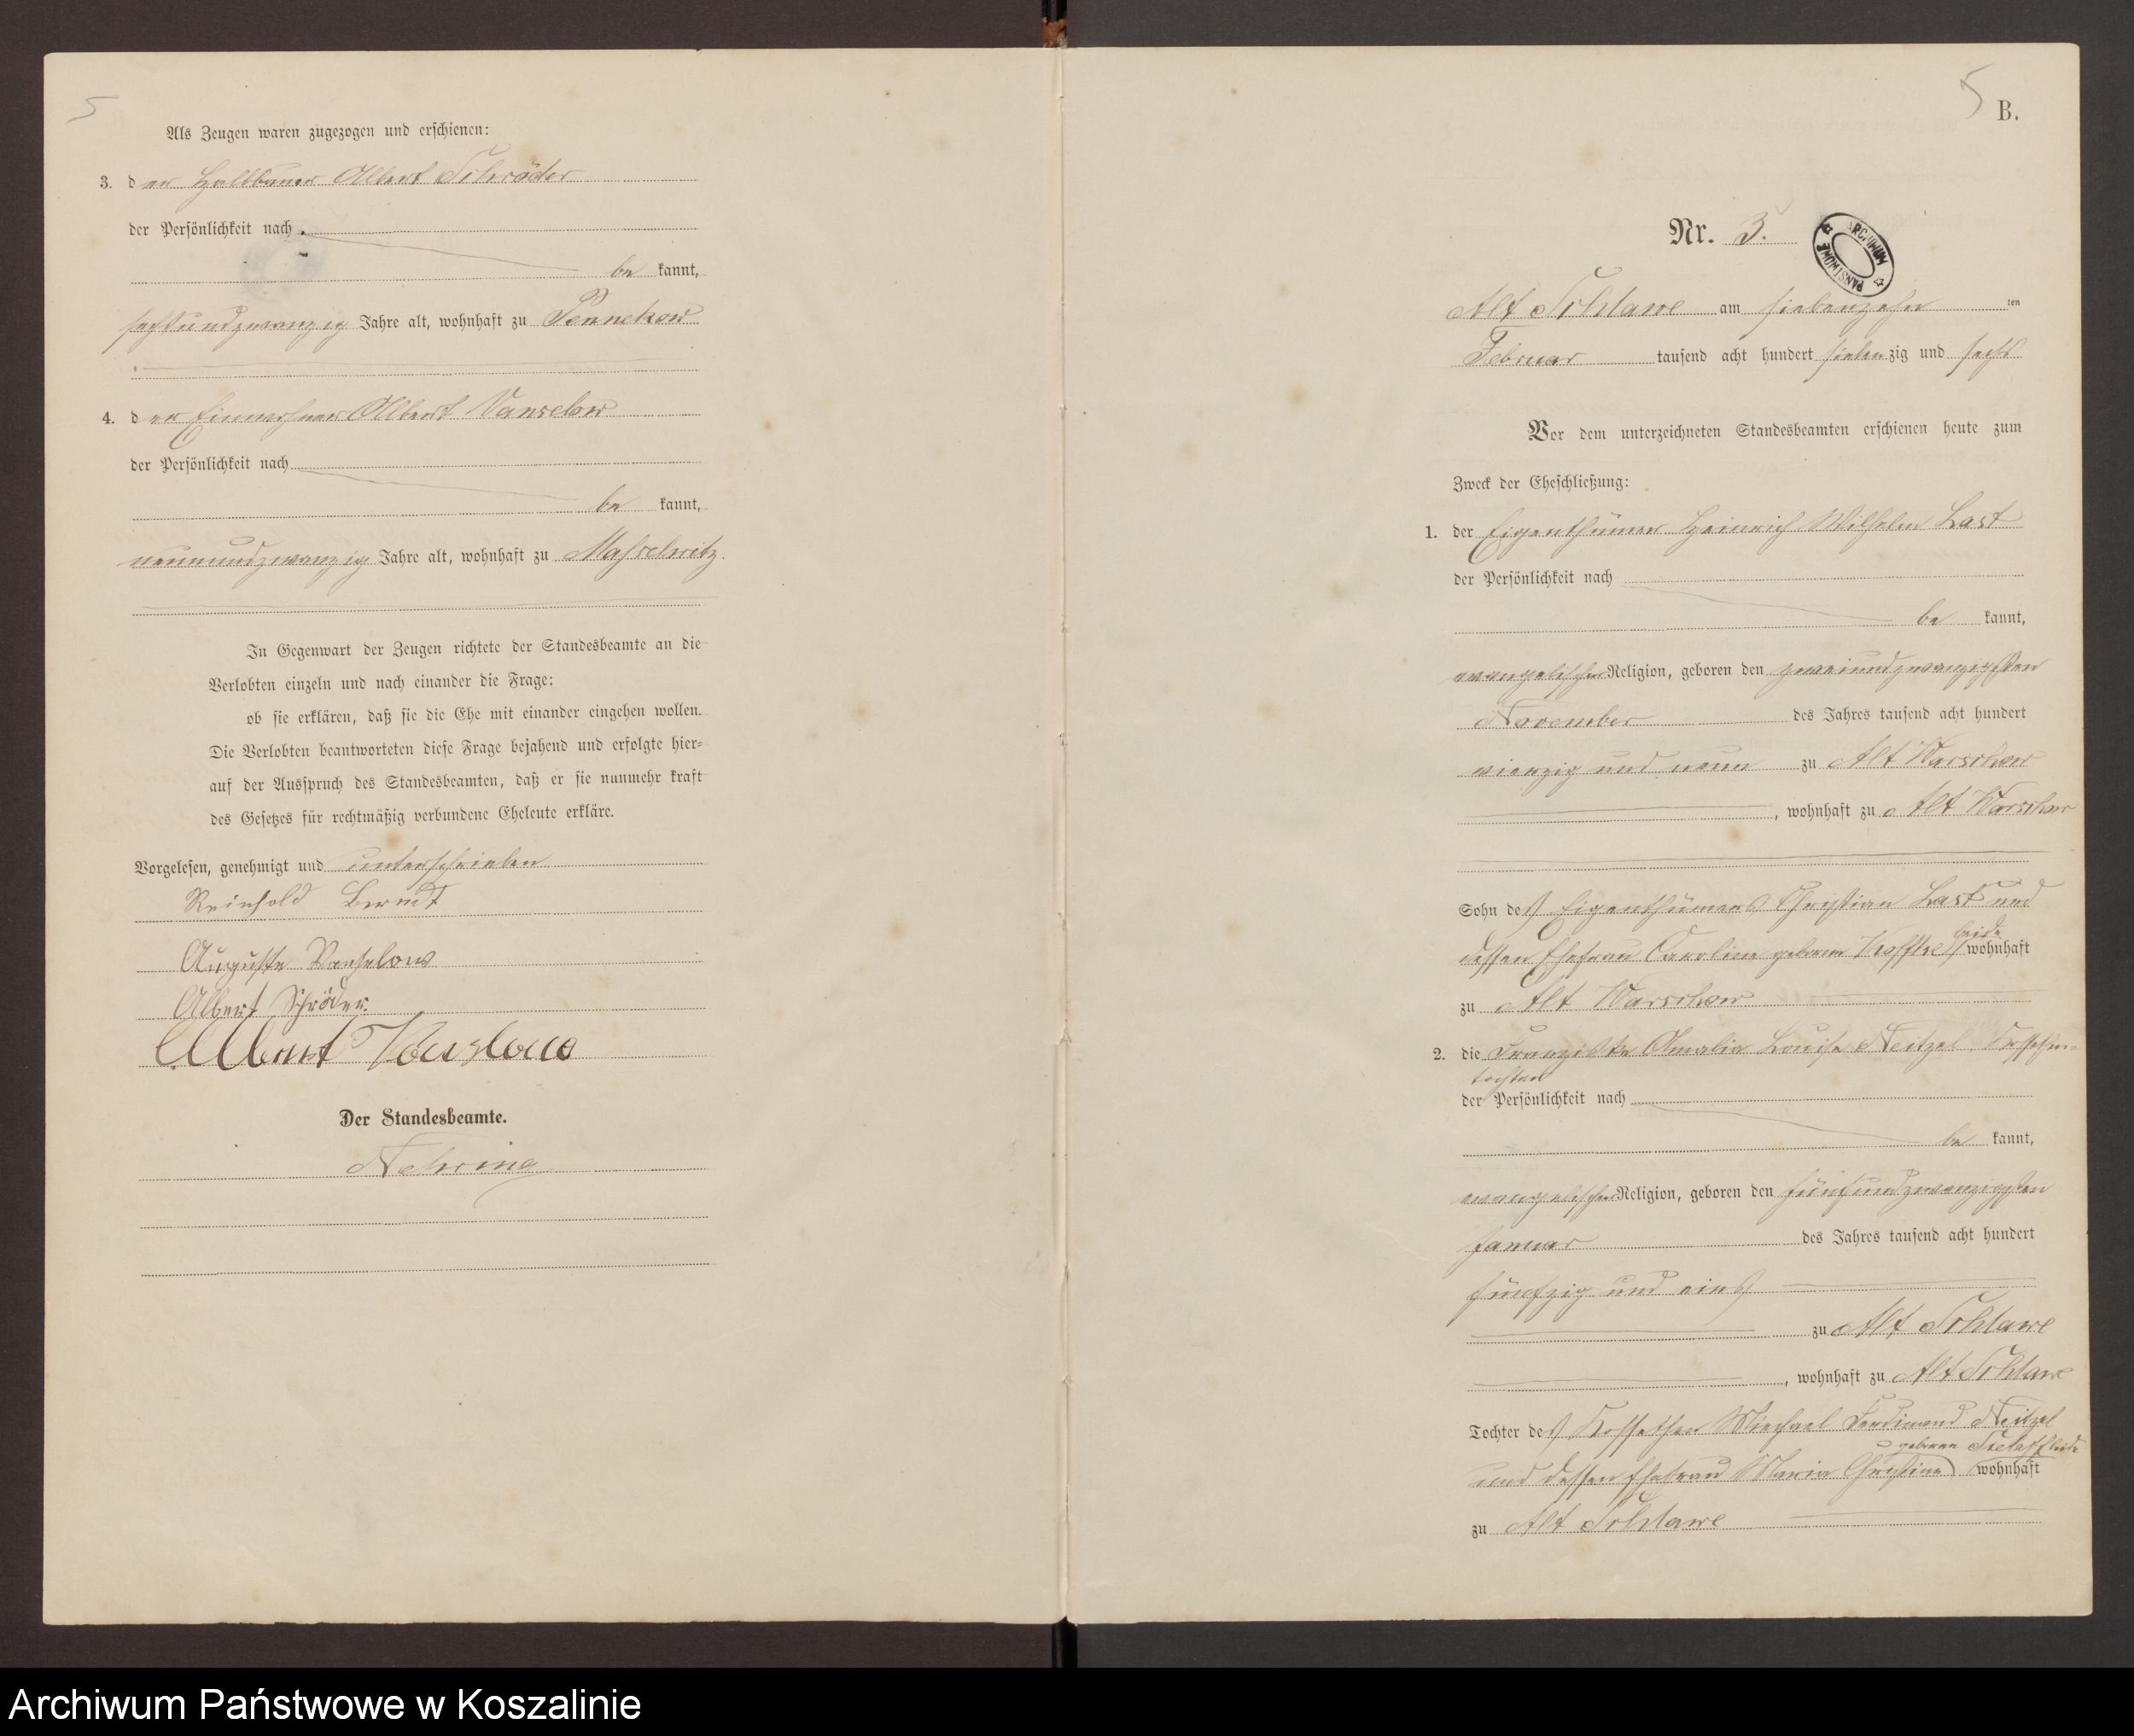 5
Als Zeugen waren zugezogen und erschienen:
3. der Halbbauer Albert Schröder
der Persönlichkeit nach
be kannt,
sechsundzwanzig Jahre alt, wohnhaft zu Pennekow
4. der Einwohner Albert Vanselow
der Persönlichkeit nach
be kannt,
neunundzwanzig Jahre alt, wohnhaft zu Mahselwitz.
In Gegenwart der Zeugen richtete der Standesbeamte an die
Verlobten einzeln und nach einander die Frage:
ob sie erklären, daß sie die Ehe mit einander eingehen wollen.
Die Verlobten beantworteten diese Frage bejahend und erfolgte hier-
auf der Ausspruch des Standesbeamten, daß er sie nunmehr kraft
des Gesetzes für rechtmäßig verbundene Eheleute erkläre.
Vorgelesen, genehmigt und unterschrieben
Reinhold Berndt
Auguste Vanselow
Albert Schröder.
Albert Vanslow
Der Standesbeamte.
Nehring
5
B.
Nr. 3.
ARCHIWUM PAŃSTWOWE
Alt Schlawe am siebenzehn ten
Februar tausend acht hundert siebenzig und sechs
Vor dem unterzeichneten Standesbeamten erschienen heute zum
Zweck der Eheschließung:
1. der Eigenthümer Heinrich Wilhelm Last
der Persönlichkeit nach
be kannt,
evangelischer Religion, geboren den zweiundzwanzigsten
November des Jahres tausend acht hundert
vierzig und neun zu Alt Warschow
, wohnhaft zu Alt Warschow
Sohn des Eigenthümers Christian Last und
dessen Ehefrau Caroline geborne beide wohnhaft
zu Alt Warschow
2. die Franziska Amalie Louise Neitzel, Kossathen-
tochter
der Persönlichkeit nach
be kannt,
evangelischer Religion, geboren den fünfundzwanzigsten
Januar des Jahres tausend acht hundert
fünfzig und eins
zu Alt Schlawe
, wohnhaft zu Alt Schlawe
Tochter des Kossathen Michael Ferdinand Neitzel
geborne
und dessen Ehefrau Maria Christine wohnhaft
zu Alt Schlawe
Archiwum Państwowe w Koszalinie